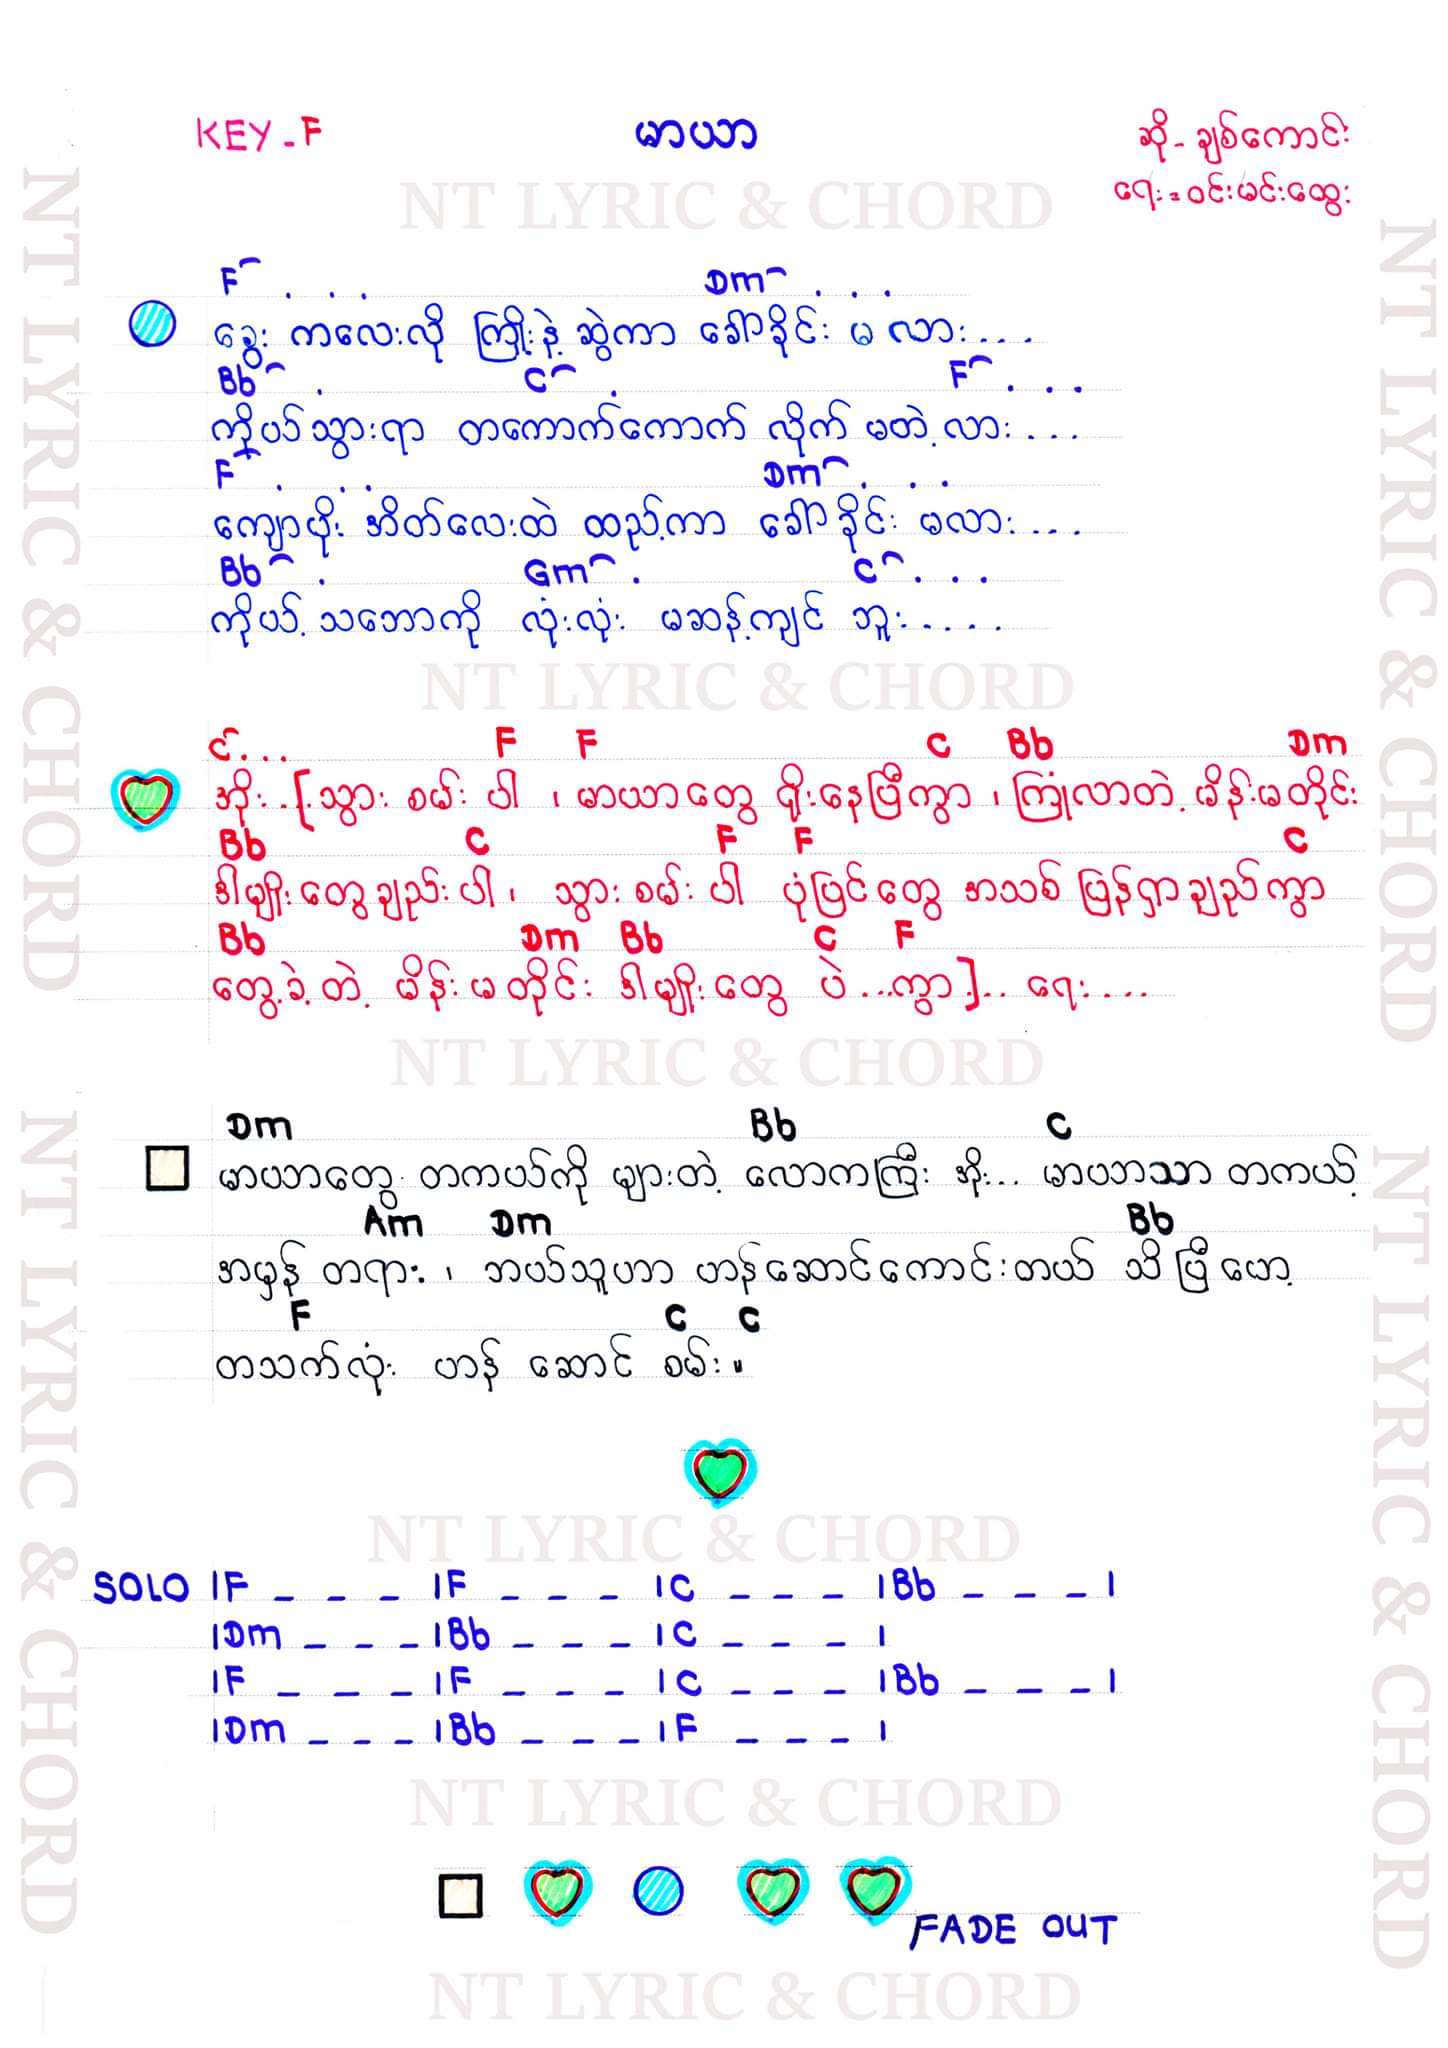 KEY - F
မာယာ
ဆို - ချစ်ကောင်း
ရေး = ဝင်းမင်းထွေး
NT LYRIC & CHORD
F . . . Dm . . .
ခွေး ကလေးလို ကြိုးနဲ့ ဆွဲကာ ခေါ်ခိုင်း မ လား . . .
Bb . C . F . . .
ကိုယ်သွားရာ တကောက်ကောက် လိုက် မတဲ့ လား . . .
F . . . Dm . . .
ကျောပိုး အိတ်လေးထဲ ထည့်ကာ ခေါ်ခိုင်း မလား . . .
Bb . Gm . C . . .
ကိုယ့် သဘောကို လုံးလုံး မဆန့်ကျင် ဘူး . . . .
NT LYRIC & CHORD
C . . . F F C Bb Dm
အိုး . . [ သွား စမ်း ပါ ၊ မာယာတွေ ရိုးနေပြီကွာ ၊ ကြုံလာတဲ့ မိန်းမတိုင်း
Bb C F F C
ဒါမျိုးတွေချည်း ပါ ၊ သွား စမ်း ပါ ပုံပြင်တွေ အသစ် ပြန်ရှာချည်ကွာ
Bb Dm Bb C F
တွေ့ခဲ့တဲ့ မိန်းမတိုင်း ဒါမျိုးတွေ ပဲ . . . ကွာ ] . . ရေး . . .
NT LYRIC & CHORD
Dm Bb C
မာယာတွေ တကယ်ကို များတဲ့ လောကကြီး အိုး . . မာယာသာ တကယ့်
Am Dm Bb
အမှန် တရား ၊ ဘယ်သူဟာ ဟန်ဆောင်ကောင်းတယ် သိပြီပေါ့
F C C
တသက်လုံး ဟန် ဆောင် စမ်း ။
NT LYRIC & CHORD
SOLO |F _ _ _ |F _ _ _ |C _ _ _ |Bb _ _ _ |
|Dm _ _ _ |Bb _ _ _ |C _ _ _ |
|F _ _ _ |F _ _ _ |C _ _ _ |Bb _ _ _ |
|Dm _ _ _ |Bb _ _ _ |F _ _ _ |
NT LYRIC & CHORD
FADE OUT
NT LYRIC & CHORD
NT LYRIC & CHORD
NT LYRIC & CHORD
NT LYRIC & CHORD
NT LYRIC & CHORD